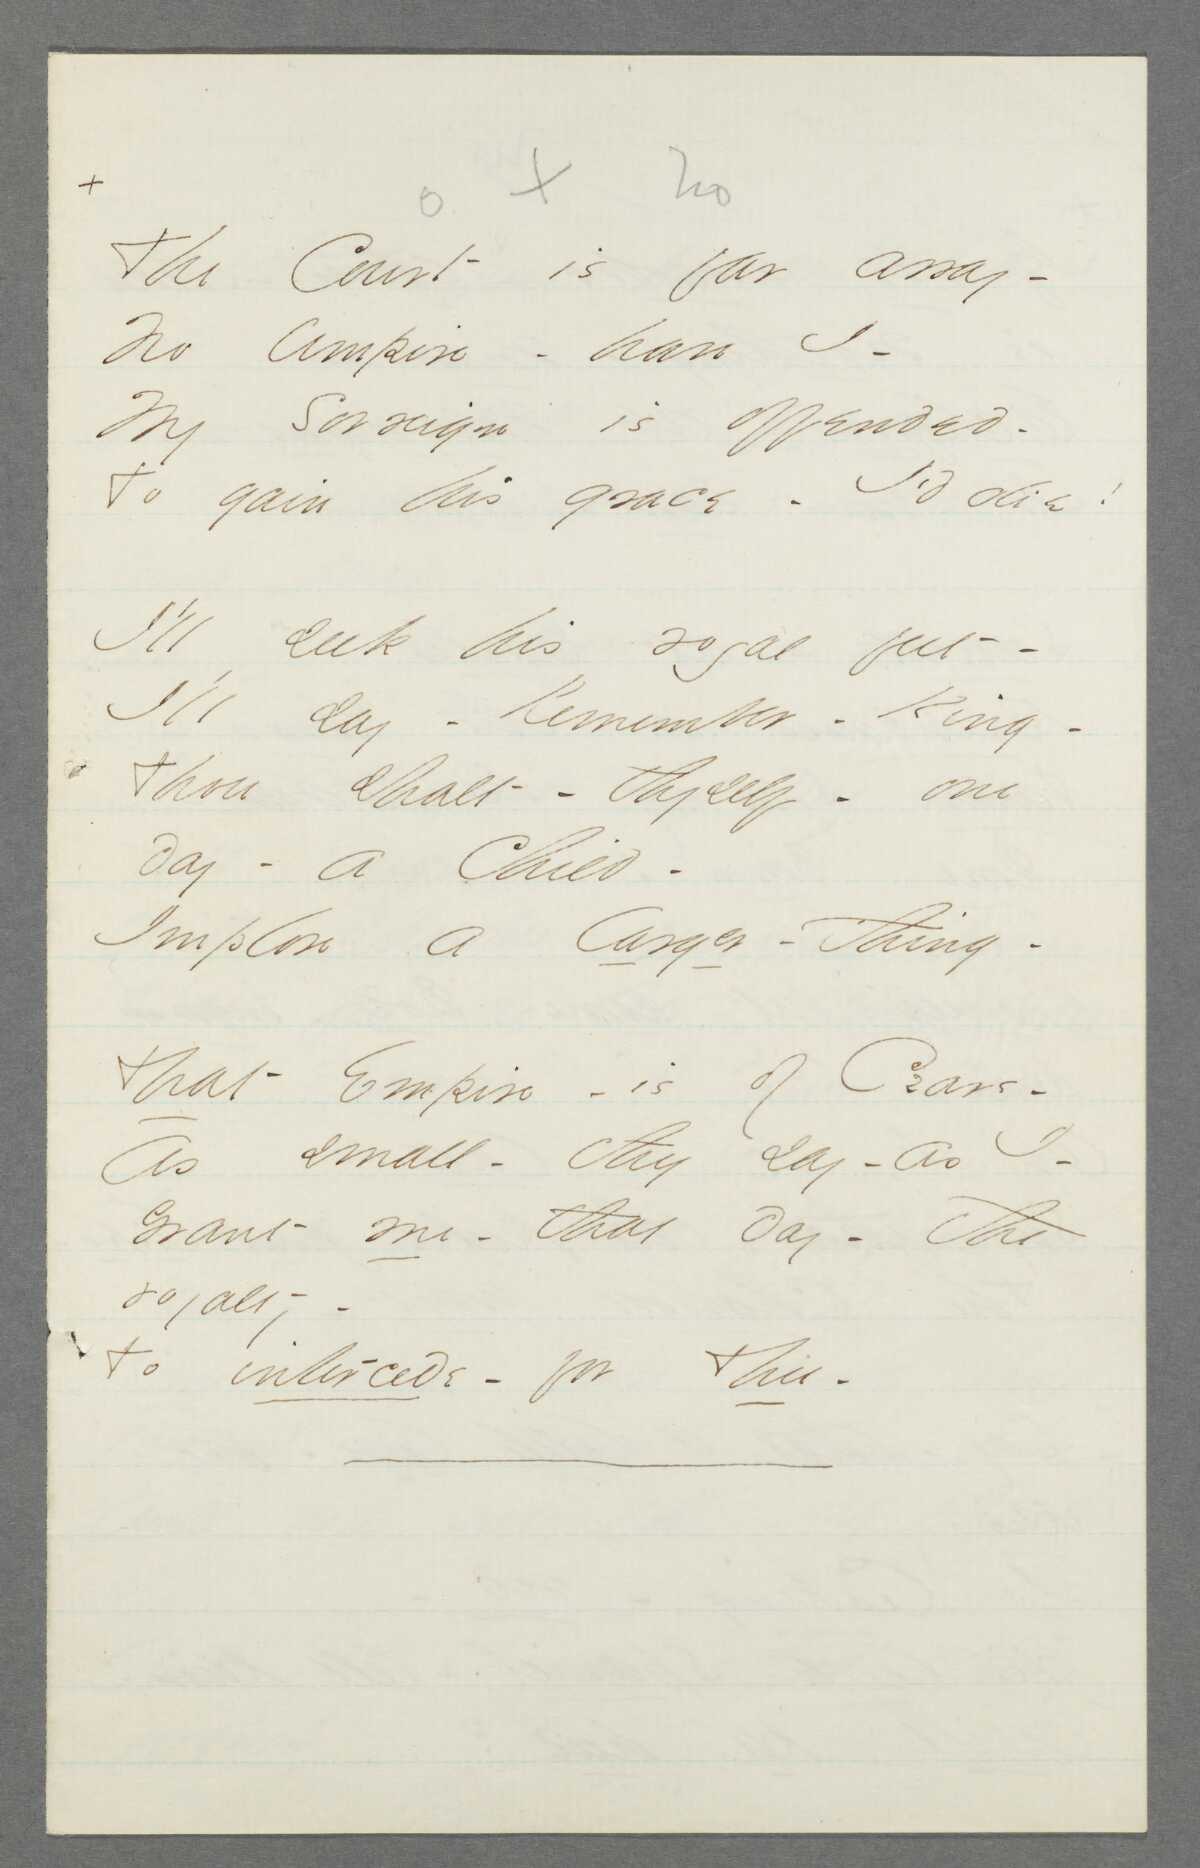 + o X no
The Court is far away -
No Umpire - have I -
My Sovreign is offended -
To gain his grace - I'd die!
I'll seek his royal feet -
I'll say - Remember - King -
Thou shalt - thyself - one
day - a Child -
Implore a larger - thing -
That Empire - is of Czars -
As small - they say - as I -
Grant me - that day - the
royalty -
To intercede - for Thee -